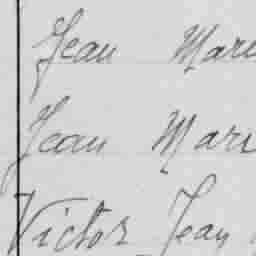 Jean Mari
Jean Mari
Victor Jean